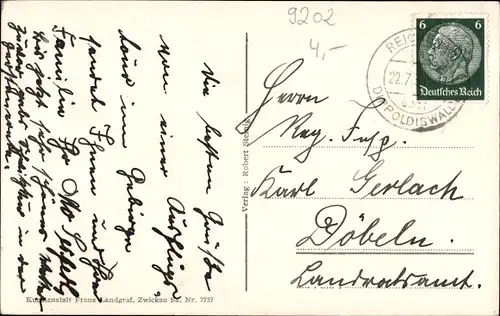 9202
4,-
6 6
Deutsches Reich
REI
22.7.
DIPPOLDISWALD
Die besten Grüße
von einer Ausflugs
tour im Gebirge
sendet Ihnen und Ihrer
Familie Ihr Otto
Bis jetzt sehr schönes
in der
Herrn
Reg. Insp.
Karl Gerlach
Döbeln.
Landratsamt.
Verlag: Robert
Kunstanstalt Franz Landgraf, Zwickau Sa. Nr. 7757